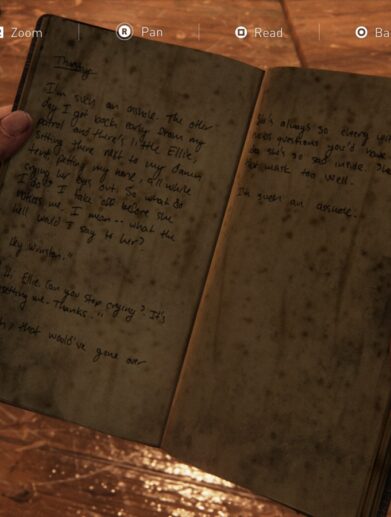 Zoom
R Pan
Read
Ba
I'm such an asshole. The other
day I got back early from my
patrol and there's little Ellie,
sitting there next to my damn
tent, petting my horse, all while
crying her eyes out. So what do
I do? I take off before she
notices me. I mean -- what the
hell would I say to her?
ey Winston."
Hi Ellie. Can you stop crying? It's
setting me. Thanks.."
h, that would've gone over
She's always so cheery
questions you'd
she's so sad inside. She
mask too well.
I'm such an asshole.